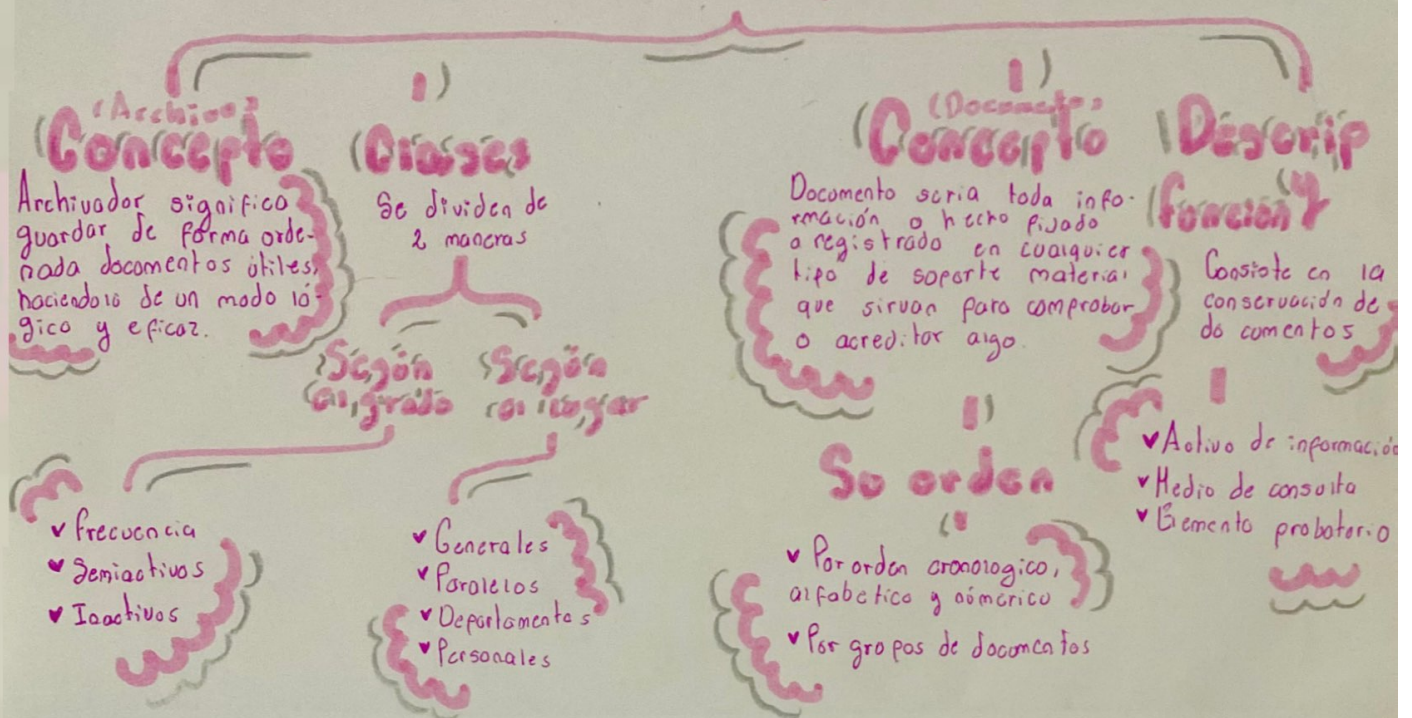 (Archivo)
Concepto
Archivador significa
guardar de forma orde-
nada documentos útiles,
haciendolo de un modo ló-
gico y eficaz.
Clases
Se dividen de
2 maneras
Según
el grado
Según
el lugar
Frecuencia
Semiactivos
Inactivos
Generales
Paralelos
Departamentos
Personales
(Documentos)
Concepto
Documento seria toda info-
rmación o hecho fijado
o registrado en cualquier
tipo de soporte material
que sirvan para comprobar
o acreditar algo.
Su orden
Por orden cronologico,
alfabetico y númerico
Por grupos de documentos
Descrip
función y
Consiste en la
conservación de
documentos
Activo de información
Medio de consulta
Elemento probatorio